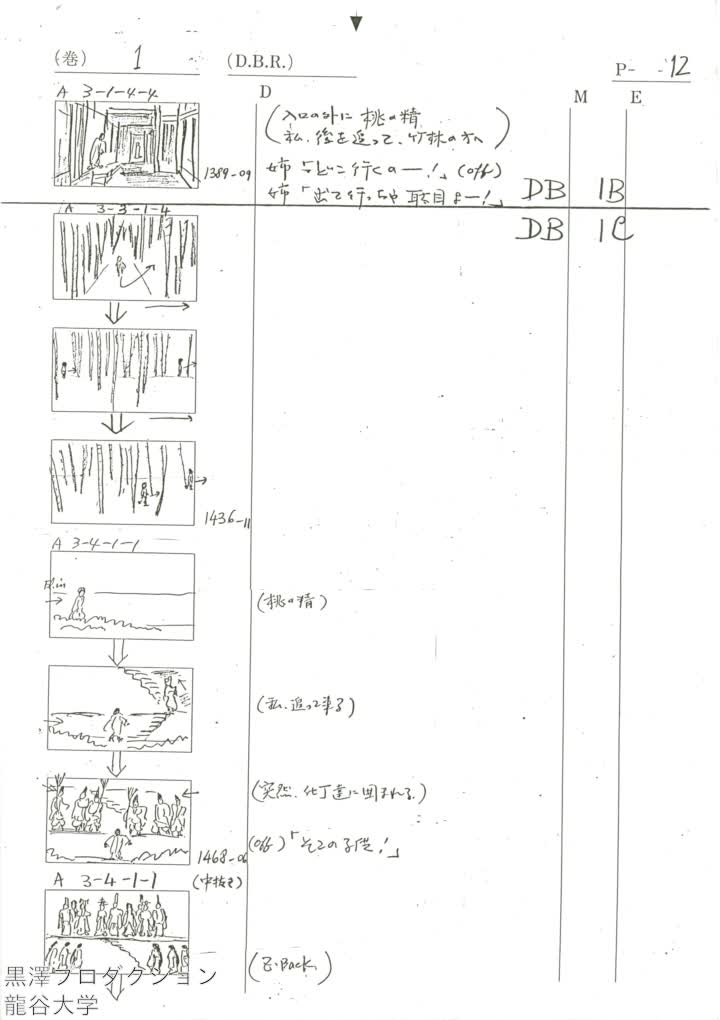 (巻) 1 (D.B.R.) P- -12
D M E
A 3-1-4-4
(入口の外に桃の精
(私、後を追って、竹林の方へ)
1389-09
姉「どこ行くのー!」(off)
姉「出て行っちゃ駄目よー!」
DB 1B
A 3-3-1-4
DB 1C
1436-11
A 3-4-1-1
F.in
(桃の精)
(私、追って来る)
(突然、仕丁達に囲まれる.)
1468-06
(off)「そこの子供!」
A 3-4-1-1
(中抜き)
(Z.Back)
黒澤プロダクション
龍谷大学